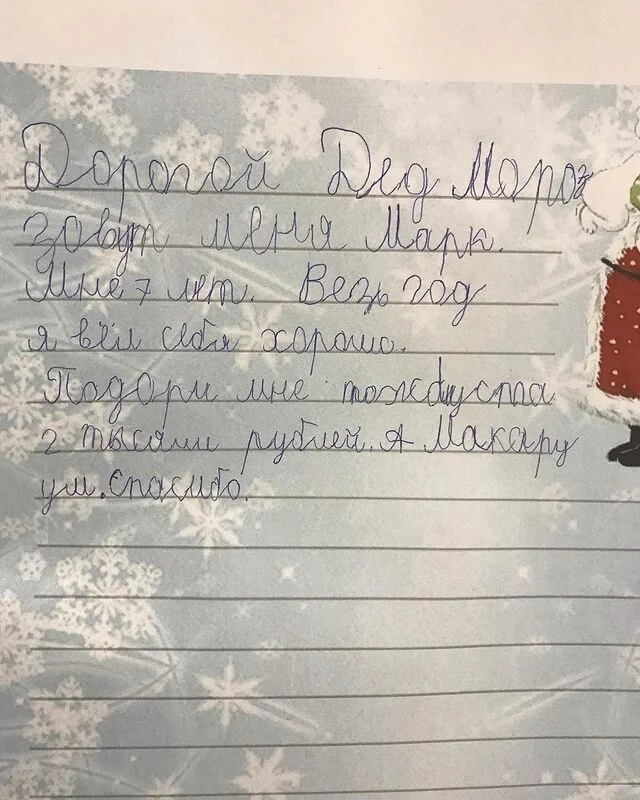 Дорогой Дед Мороз
зовут меня Марк.
Мне 7 лет. Везь год
я вёл себя хорошо.
Подори мне пожалуста
2 тысячи рублей. А Макару
ум. Спасибо.